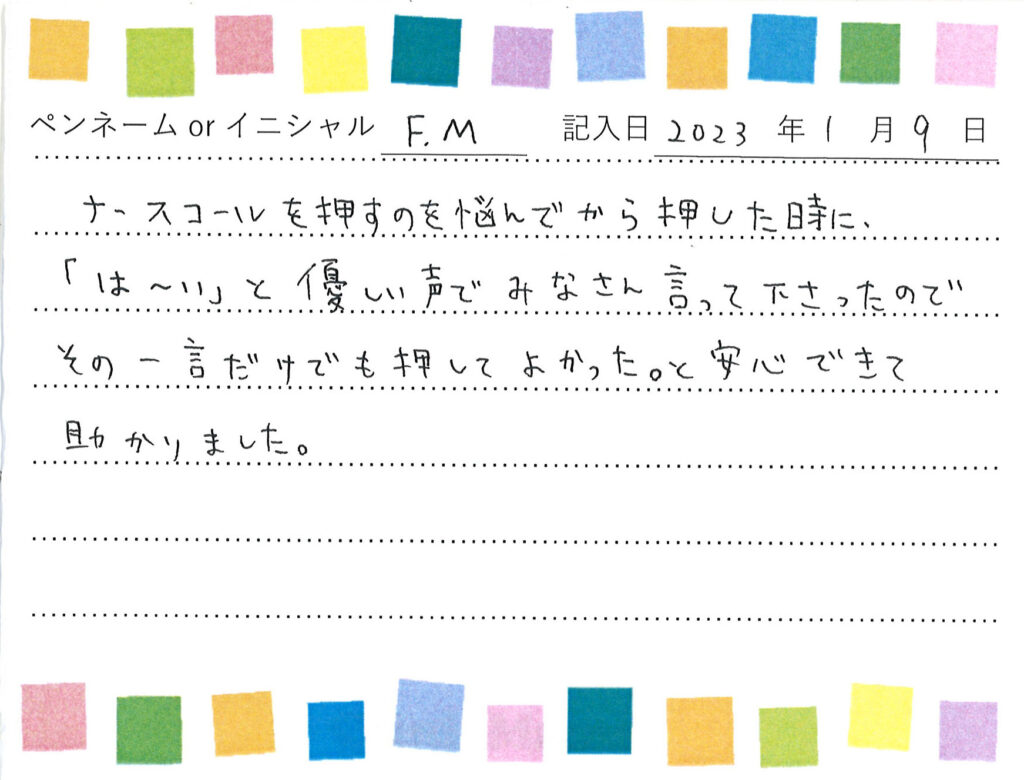 ペンネーム or イニシャル F.M 記入日 2023 年 1 月 9 日
ナースコールを押すのを悩んでから押した時に、
「は～い」と優しい声でみなさん言って下さったので
その一言だけでも押してよかった。と安心できて
助かりました。